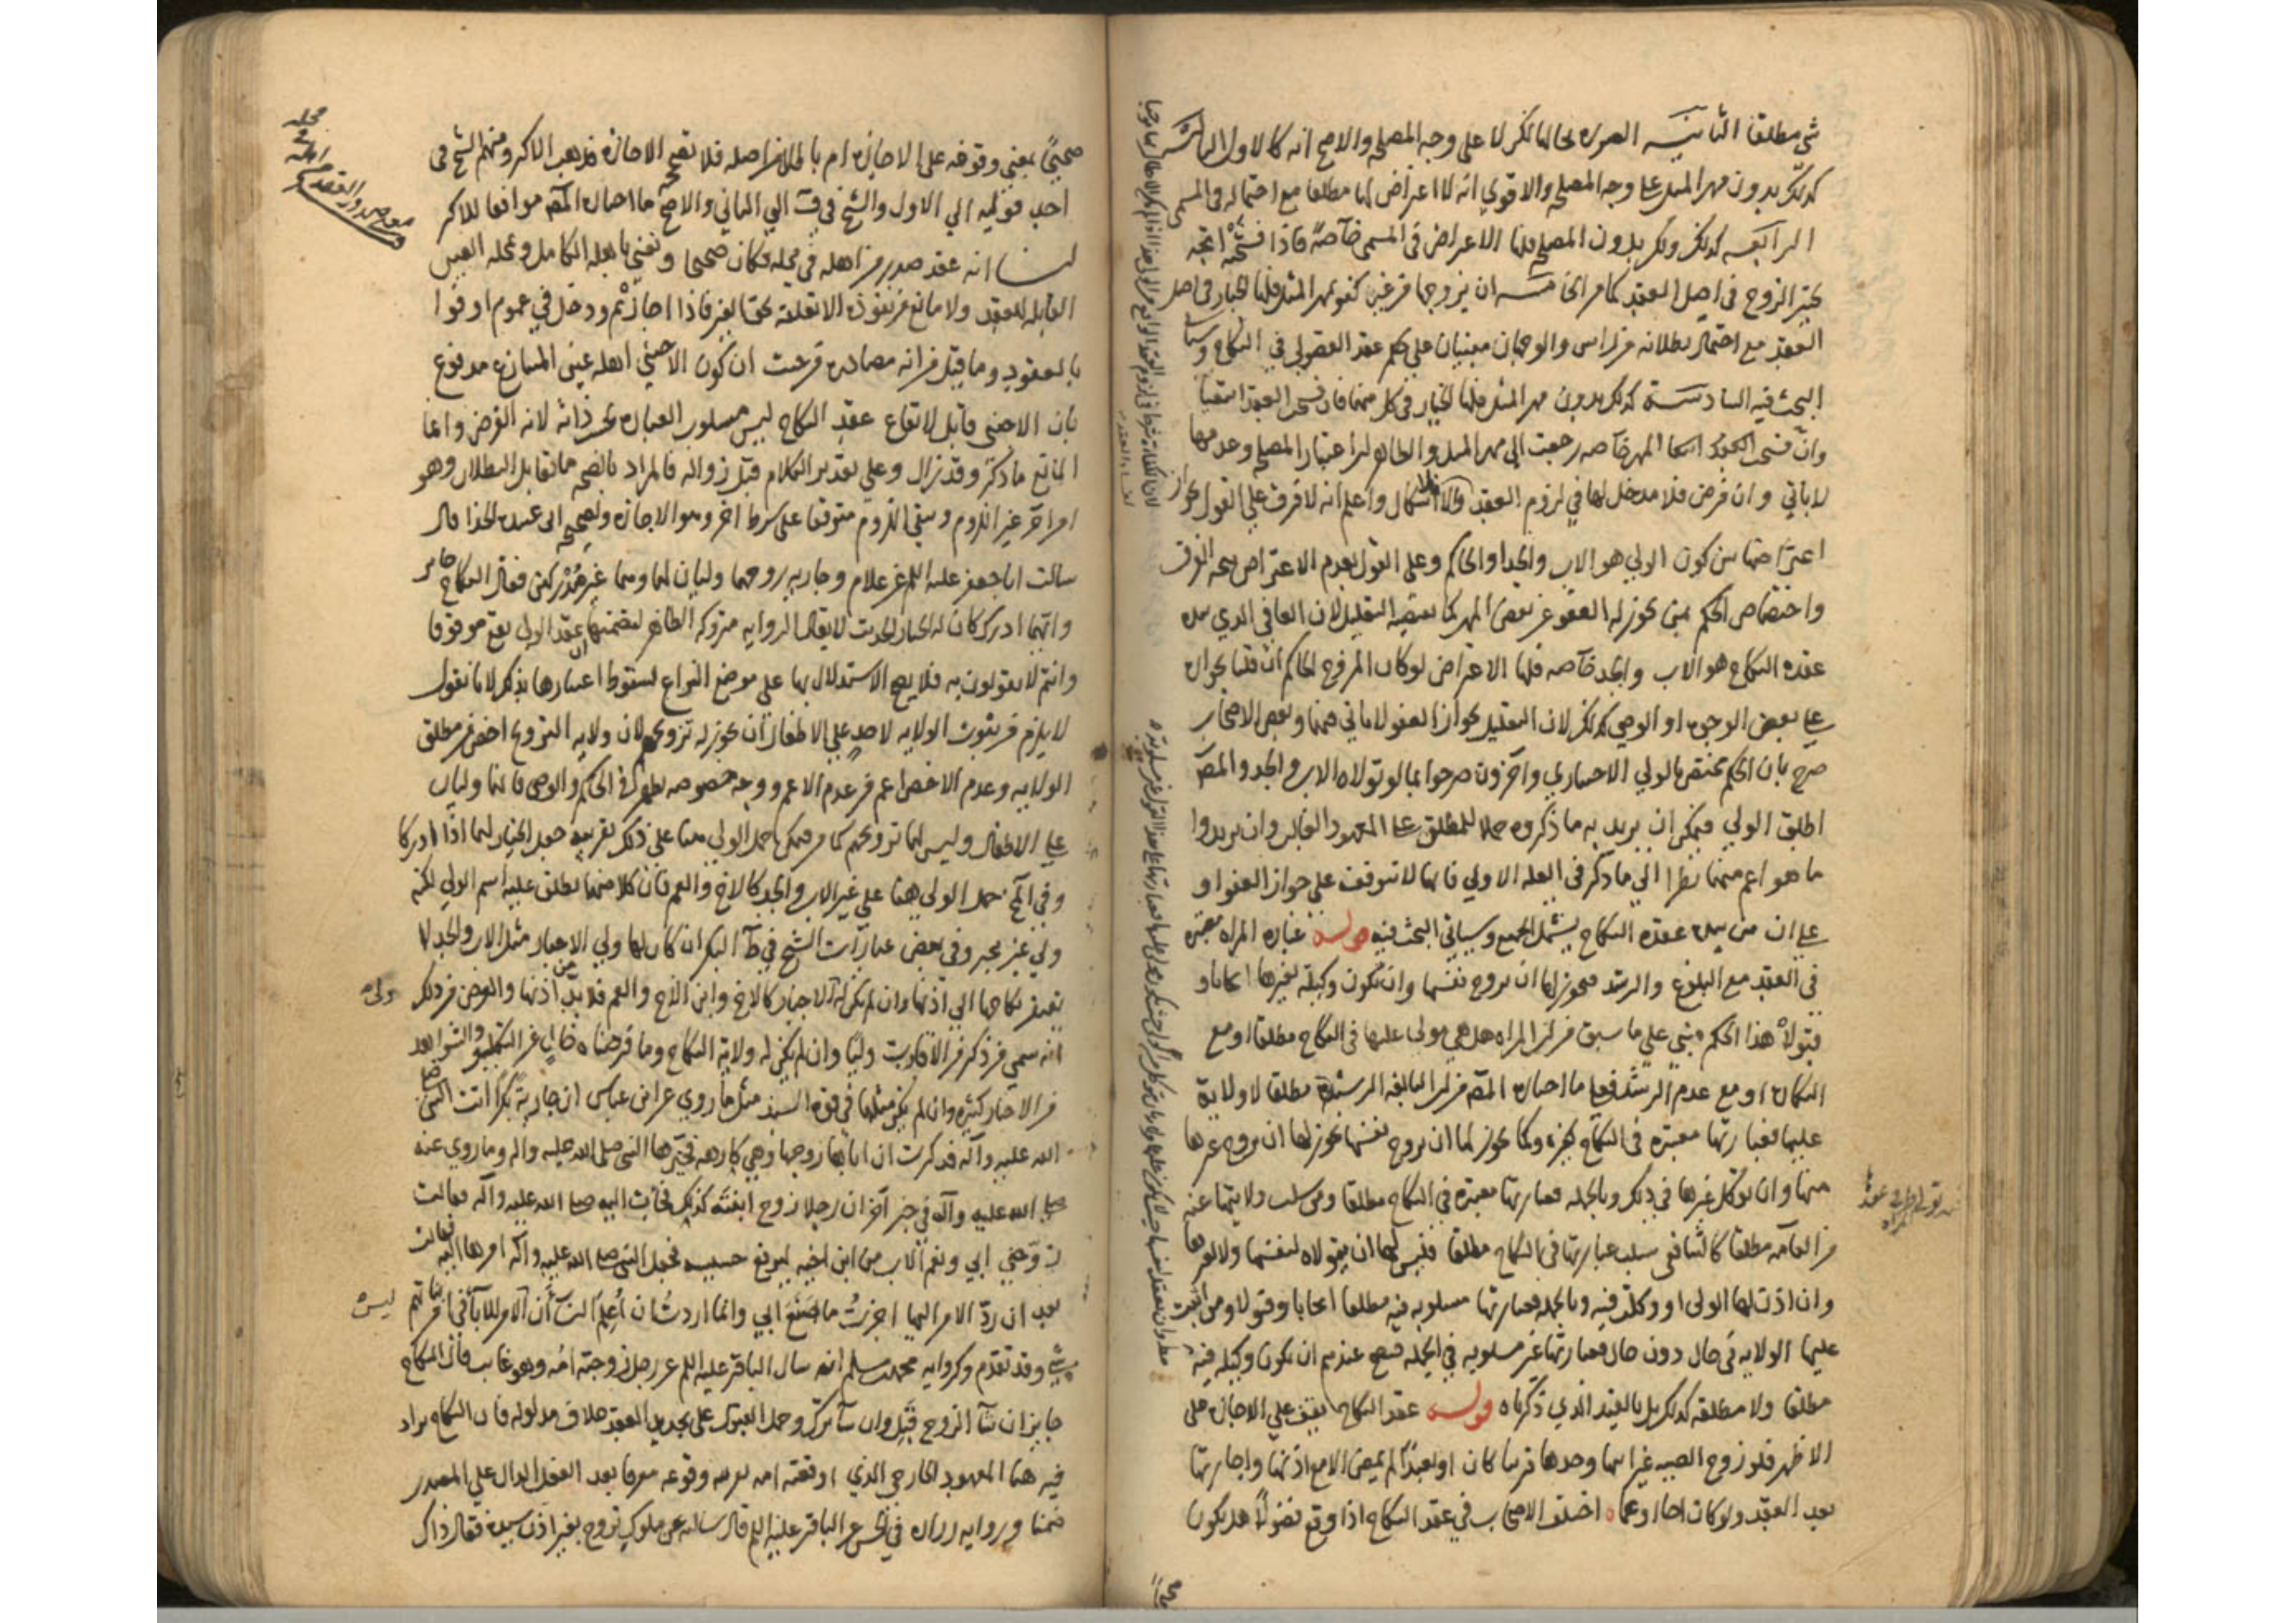 شي مطلقا الثانية الصورة بحالها لكن لا على وجه المصلحة والاصح انه كالاول الثالثة
كذلك بدون مهر المثل على وجه المصلحة والاقوي انه لا اعتراض لها مطلقا مع احتماله في المسمى
الرابعة كذلك ولكن بدون المصلحة فلها الاعتراض في المسمى خاصة فاذا فسخته اتجه
تخير الزوج في اصل العقد كما مر الخامسة ان يزوجها من غير كفو بمهر المثل فلها الخيار في اصل
العقد مع احتمال بطلانه من راس والوجهان مبنيان على حكم عقد الفضولي في النكاح وسياتي
البحث فيه السادسة كذلك بدون مهر المثل فلها الخيار في كل منهما فان فسخت العقد استغنيا
وان فسخت المهر خاصه رجعت الى مهر المثل والظاهر ان اعتبار المصلحة وعدمها
لا ياتي وان فرض فلا مدخل لها في لزوم العقد والا اشكال واعلم انه لا فرق على القول بجواز
اعتراضها بين كون الولي هو الاب والجد او الحاكم وعلى القول بعدم الاعتراض يتجه الفرق
واختصاص الحكم بمن يجوز له العفو عن بعض المهر كما يقتضيه التعليل لان العافي الذي بيده
عقدة النكاح هو الاب والجد خاصه فلها الاعتراض لو كان المزوج الحاكم ان قلنا بجوازه
على بعض الوجوه او الوصي كذلك لان التعليل بجواز العفو لا ياتي فيهما وبعض الاصحاب
صرح بان الحكم مختص بالولي الاجباري واخرون صرحوا بما لو تولاه الاب والجد والمص
اطلق الولي فيمكن ان يريد به ما ذكروه حملا للمطلق على المعهود الغالب وان يريدوا
ما هو اعم منهما نظرا الي ما ذكر في العله الاولي فانها لا تتوقف علي جواز العفو او
على ان من بيده عقدة النكاح يشمل الجميع وسياتي البحث فيه قوله عبارة المراه معتبرة
في العقد مع البلوغ والرشد فيجوز لها ان تزوج نفسها وان تكون وكيلة لغيرها ايجابا و
قبولا هذا الحكم مبني علي ما سبق من ان المراه هل هي مولى عليها في النكاح مطلقا او مع
البكارة او مع عدم الرشد فعلى ما اختاره المص من ان البالغه الرشيدة مطلقا لا ولاية
عليها فعبارتها معتبرة في النكاح كغيره وكما يجوز لها ان تزوج نفسها يجوز لها ان تزوج غيرها
منها وان توكل غيرها في ذلك وبالجمله فعبارتها معتبرة في النكاح مطلقا ومن سلب ولايتها عنه
من العامه مطلقا كالشافعي سلب عبارتها في النكاح مطلقا فليس لها ان تتولاه لنفسها ولا لغيرها
وان اذن لها الولي او وكلت فيه وبالجمله فعبارتها مسلوبه فيه مطلقا ايجابا وقبولا ومن اثبت
عليها الولايه في حال دون حال فعبارتها غير مسلوبه في الجمله فيصح عندهم ان تكون وكيله فيه
مطلقا ولا مطلقه كذلك بل بالقيد الذي ذكرناه قوله عقد النكاح يقف علي الاجازة على
الاظهر فلو زوج الصبيه غير ابيها وجدها قريبا كان او بعيدا لم يمض الا مع اذنها واجازتها
بعد العقد ولو كان اخا او عما اختلف الاصحاب في عقد النكاح اذا وقع فضولا هل يكون
صحيحا بمعنى وقوفه على الاجازة ام باطلا من اصله فلا تصححه الاجازة فذهب الاكثر ومنهم الشيخ في
احد قوليه الي الاول والشيخ في ف الي الثاني والاصح ما اختاره المص موافقا للاكثر
لنا انه عقد صدر من اهله في محله فكان صحيحا ونعني باهله الكامل وبمحله العين
القابله للعقد ولا مانع من نفوذه الا تعلقه بحق الغير فاذا اجاز تم ودخل في عموم اوفوا
بالعقود وما قيل من انه مصادره من حيث ان كون الاجنبي اهله عين المتنازع مدفوع
بان الاجنبي قابل لايقاع عقد النكاح ليس مسلوب العباره بحسب ذاته لانه الفرض وانما
المانع ما ذكر وقد زال وعلى تقدير الكلام قبل زواله فالمراد بالصحه ما تقابل البطلان وهو
امر اخر غير اللزوم وبقي اللزوم متوقفا على شرط اخر وهو الاجازة وصحيحه ابي عبيده الحذا قال
سالت ابا جعفر عليه السلم عن غلام وجاريه زوجهما وليان لهما وهما غير مدركين فقال النكاح جايز
وايهما ادرك كان له الخيار الحديث لا يقال الروايه متروكه الظاهر لتضمنها ان عقد الولي يقع موقوفا
وانتم لا تقولون به فلا يصح الاستدلال بها على موضع النزاع لسقوط اعتبارها بذلك لانا نقول
لا يلزم من ثبوت الولايه لاحد على الاطفال ان يجوز له تزويجهم لان ولايه التزويج اخص من مطلق
الولايه وعدم الاخص اعم من عدم الاعم ووجه خصوصه يظهر في الحاكم والوصي فانهما وليان
على الاطفال وليس لهما تزويجهم كما مر فيمكن حمل الولي هنا على ذلك بقرينة جعل الخيار لهما اذا ادركا
وفي لح حمل الولي هنا على غير الاب والجد كالاخ والعم فان كلا منهما يطلق عليه اسم الولي لكنه
ولي غير مجبر وفي بعض عبارات الشيخ في ط البكر ان كان لها ولي الاجبار مثل الاب والجد لا
يفتقر نكاحها الي اذنها وان لم يكن له الاجبار كالاخ وابن الاخ والعم فلا بد من اذنها والغرض من ذلك
انه سمي من ذكر من الاقارب وليا وان لم يكن له ولاية النكاح وما فرضناه خال عن التكلف والشواهد
من الاخبار كثيرة وان لم يكن مثلها في قوة السند مثل ما روي عن ابن عباس ان جارية بكرا اتت النبي صلى
الله عليه وآله فذكرت ان اباها زوجها وهي كارهة فخيرها النبي صلى الله عليه واله وما روي عنه
صلى الله عليه وآله في خبر آخر ان رجلا زوج ابنته كذلك فجاءت اليه صلى الله عليه وآله فقالت
زوجني ابي ونعم الاب من ابن اخيه ليرفع خسيسته فجعل النبي صلى الله عليه وآله امرها اليها فقالت
بعد ان رد الامر اليها اجزت ما صنع ابي وانما اردت ان اعلم النساء أن الامر للآباء في
شي وقد تقدم وكروايه محمد بن مسلم انه سال الباقر عليه السلم عن رجل زوجته امه وهو غايب قال النكاح
جايز ان شاء الزوج قبل وان شاء ترك وحمل القبول على تجديد العقد خلاف مدلوله فان النكاح يراد
فيه هنا المعهود الخارجي الذي اوقعته امه بقرينه وقوعه معرفا بعد الفعل الدال على المصدر
ضمنا وروايه زراره في الحسن عن الباقر عليه السلم قال سالته عن مملوك تزوج بغير اذن سيده فقال ذاك
ولي
ليس